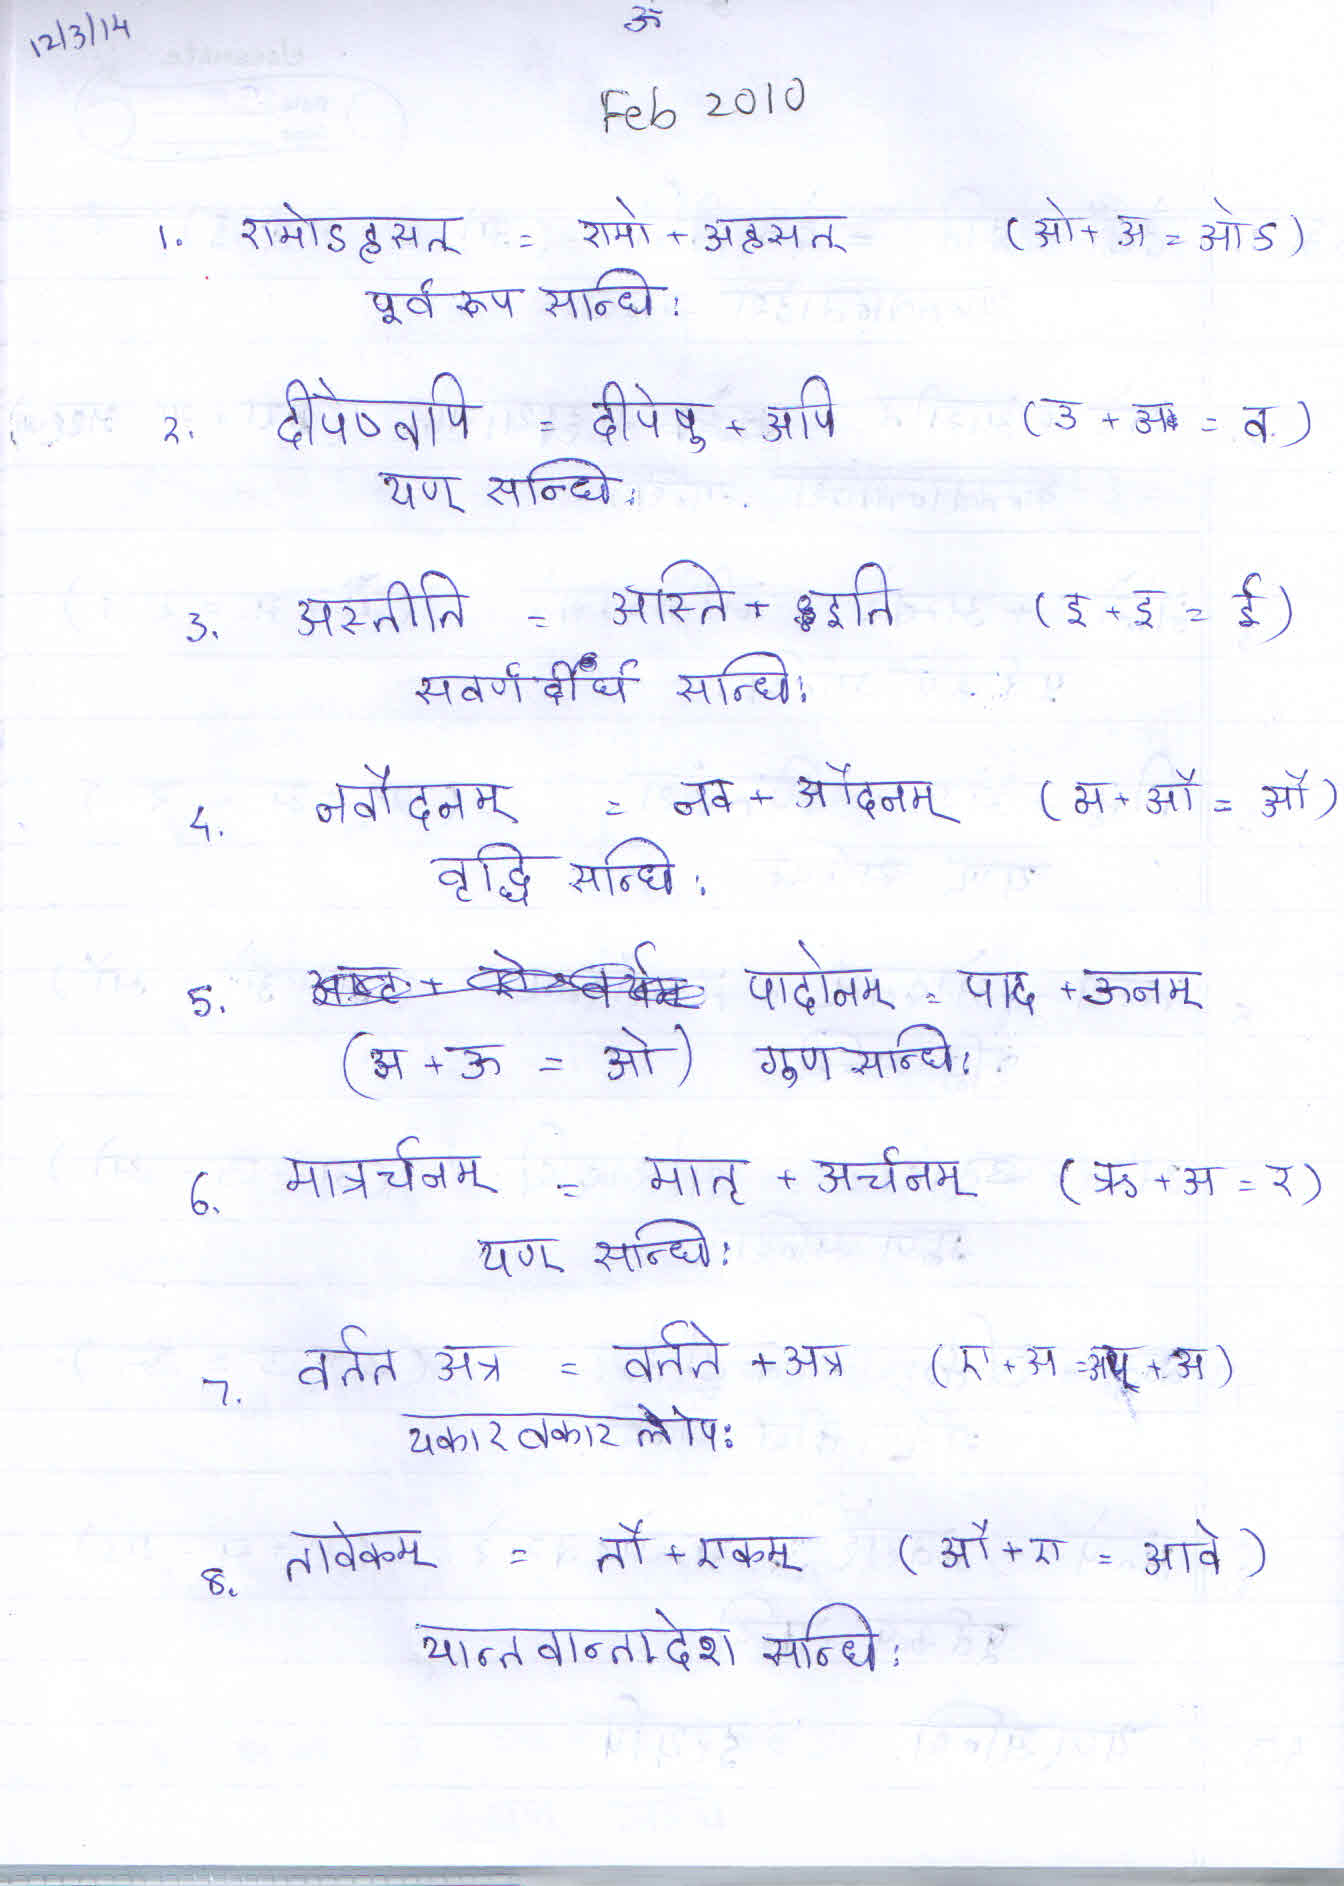 12/3/14
ॐ
Feb 2010
1. रामोऽहसत् = रामो + अहसत् (ओ + अ = ओऽ)
पूर्व रूप सन्धिः
२. दीपेष्वपि = दीपेषु + अपि (उ + अ = व.)
यण् सन्धिः
3. अस्तीति = अस्ति + इति (इ + इ = ई)
सवर्ण दीर्घ सन्धिः
4. नवौदनम् = नव + ओदनम् (अ + ओ = औ)
वृद्धि सन्धिः
5. पादोनम् = पाद + ऊनम्
(अ + ऊ = ओ) गुण सन्धिः
6. मात्रर्चनम् = मातृ + अर्चनम् (ऋ + अ = र)
यण् सन्धिः
7. वर्तत अत्र = वर्तते + अत्र (ए + अ = अय् + अ)
यकार वकार लोपः
8. तावेकम् = तौ + एकम् (औ + ए = आवे)
यान्तवान्तादेश सन्धिः